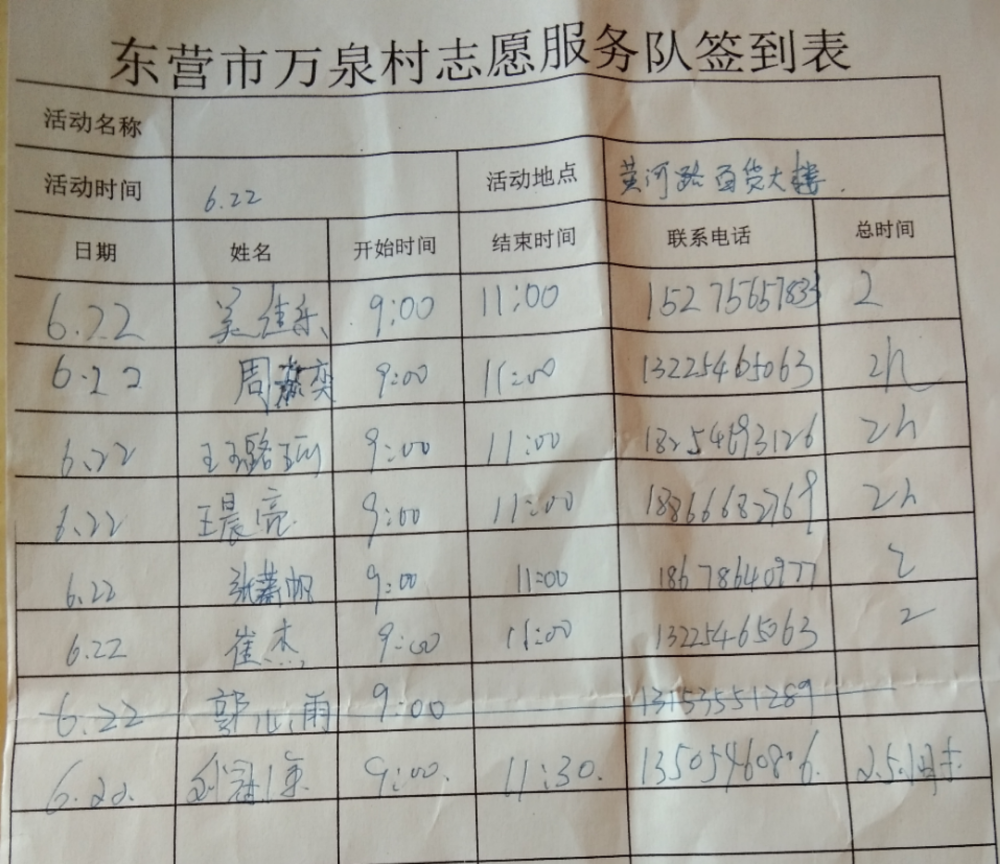 东营市万泉村志愿服务队签到表
活动名称
活动时间 6.22 活动地点 黄河路百货大楼.
日期 姓名 开始时间 结束时间 联系电话 总时间
6.22 吴佳乐 9:00 11:00 15275657833 2
6.22 周 奕 9:00 11:00 13225465063 2h
6.22 王 9:00 11:00 18254693126 2h
6.22 王晨亮 9:00 11:00 18866682769 2h
6.22 张 帆 9:00 11:00 18678640977 2
6.22 崔杰 9:00 11:00 13225465063 2
6.22 郭心雨 9:00 13153551289
6.22. 9:00. 11:30. 2.5小时